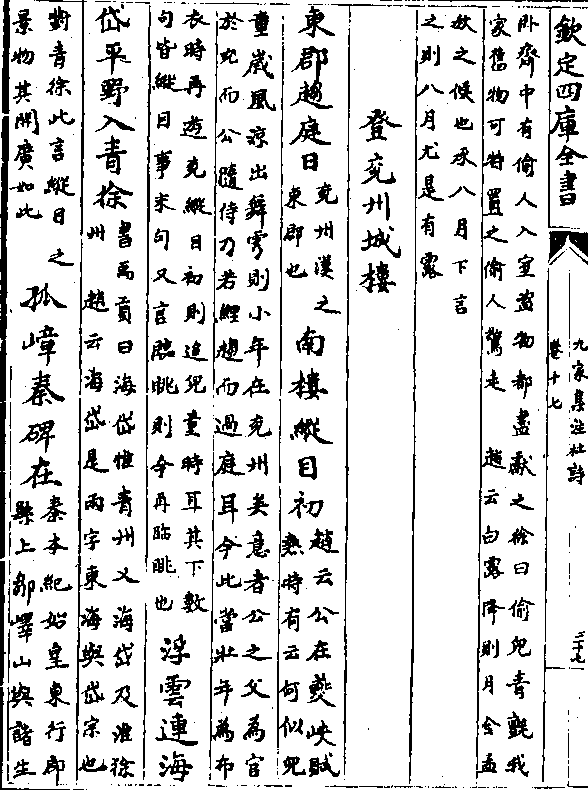 九家集注杜詩
卷十七
三十七
欽定四庫全書
卧齋中有偷人入室盜物都盡獻之徐曰偷兒青氈我
家舊物可特置之偷人驚走 趙云白露降則月令孟
秋之候也承八月下言
之則八月尤是有露
登兖州城樓
東郡趨庭日
兖州漢之
東郡也
南樓縱目初
趙云公在夔峽賦
熱時有云何似兒
童歲風涼出舞雩則小年在兖州矣意者公之父為官
於兖而公隨侍乃若鯉趨而過庭耳今此當壯年為布
衣時再遊兖縱目初則追兒童時耳其下數
句皆縱目事末句又言臨眺則今再臨眺也
浮雲連海
岱平野入青徐
書禹貢曰海岱惟青州又海岱及淮徐
州 趙云海岱是兩字東海與岱宗也
對青徐此言縱目之
景物其開廣如此
孤嶂秦碑在
秦本紀始皇東行郡
縣上鄒嶧山與諸生